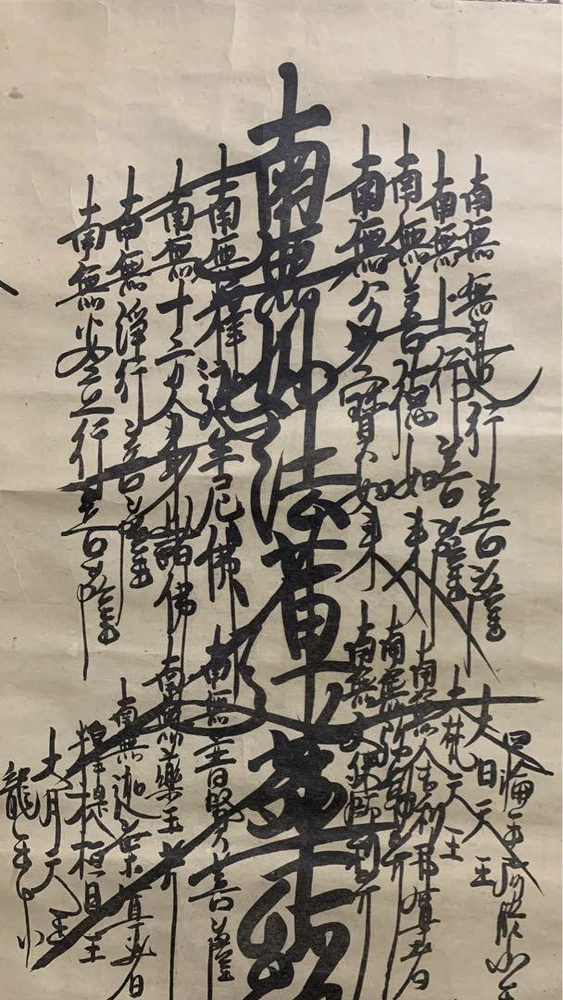 南無無邊行菩薩
南無上行菩薩
南無善德如來
南無多寶如來
南無妙法蓮華經
南無釋迦牟尼佛
南無十方分身諸佛
南無淨行菩薩
南無安立行菩薩
大日天王
大梵天王
南無舍利弗尊者
南無弥勒菩薩
南無文殊師利菩薩
南無普賢菩薩
南無藥王菩薩
南無迦葉尊者
釋提桓因王
大月天王
龍王